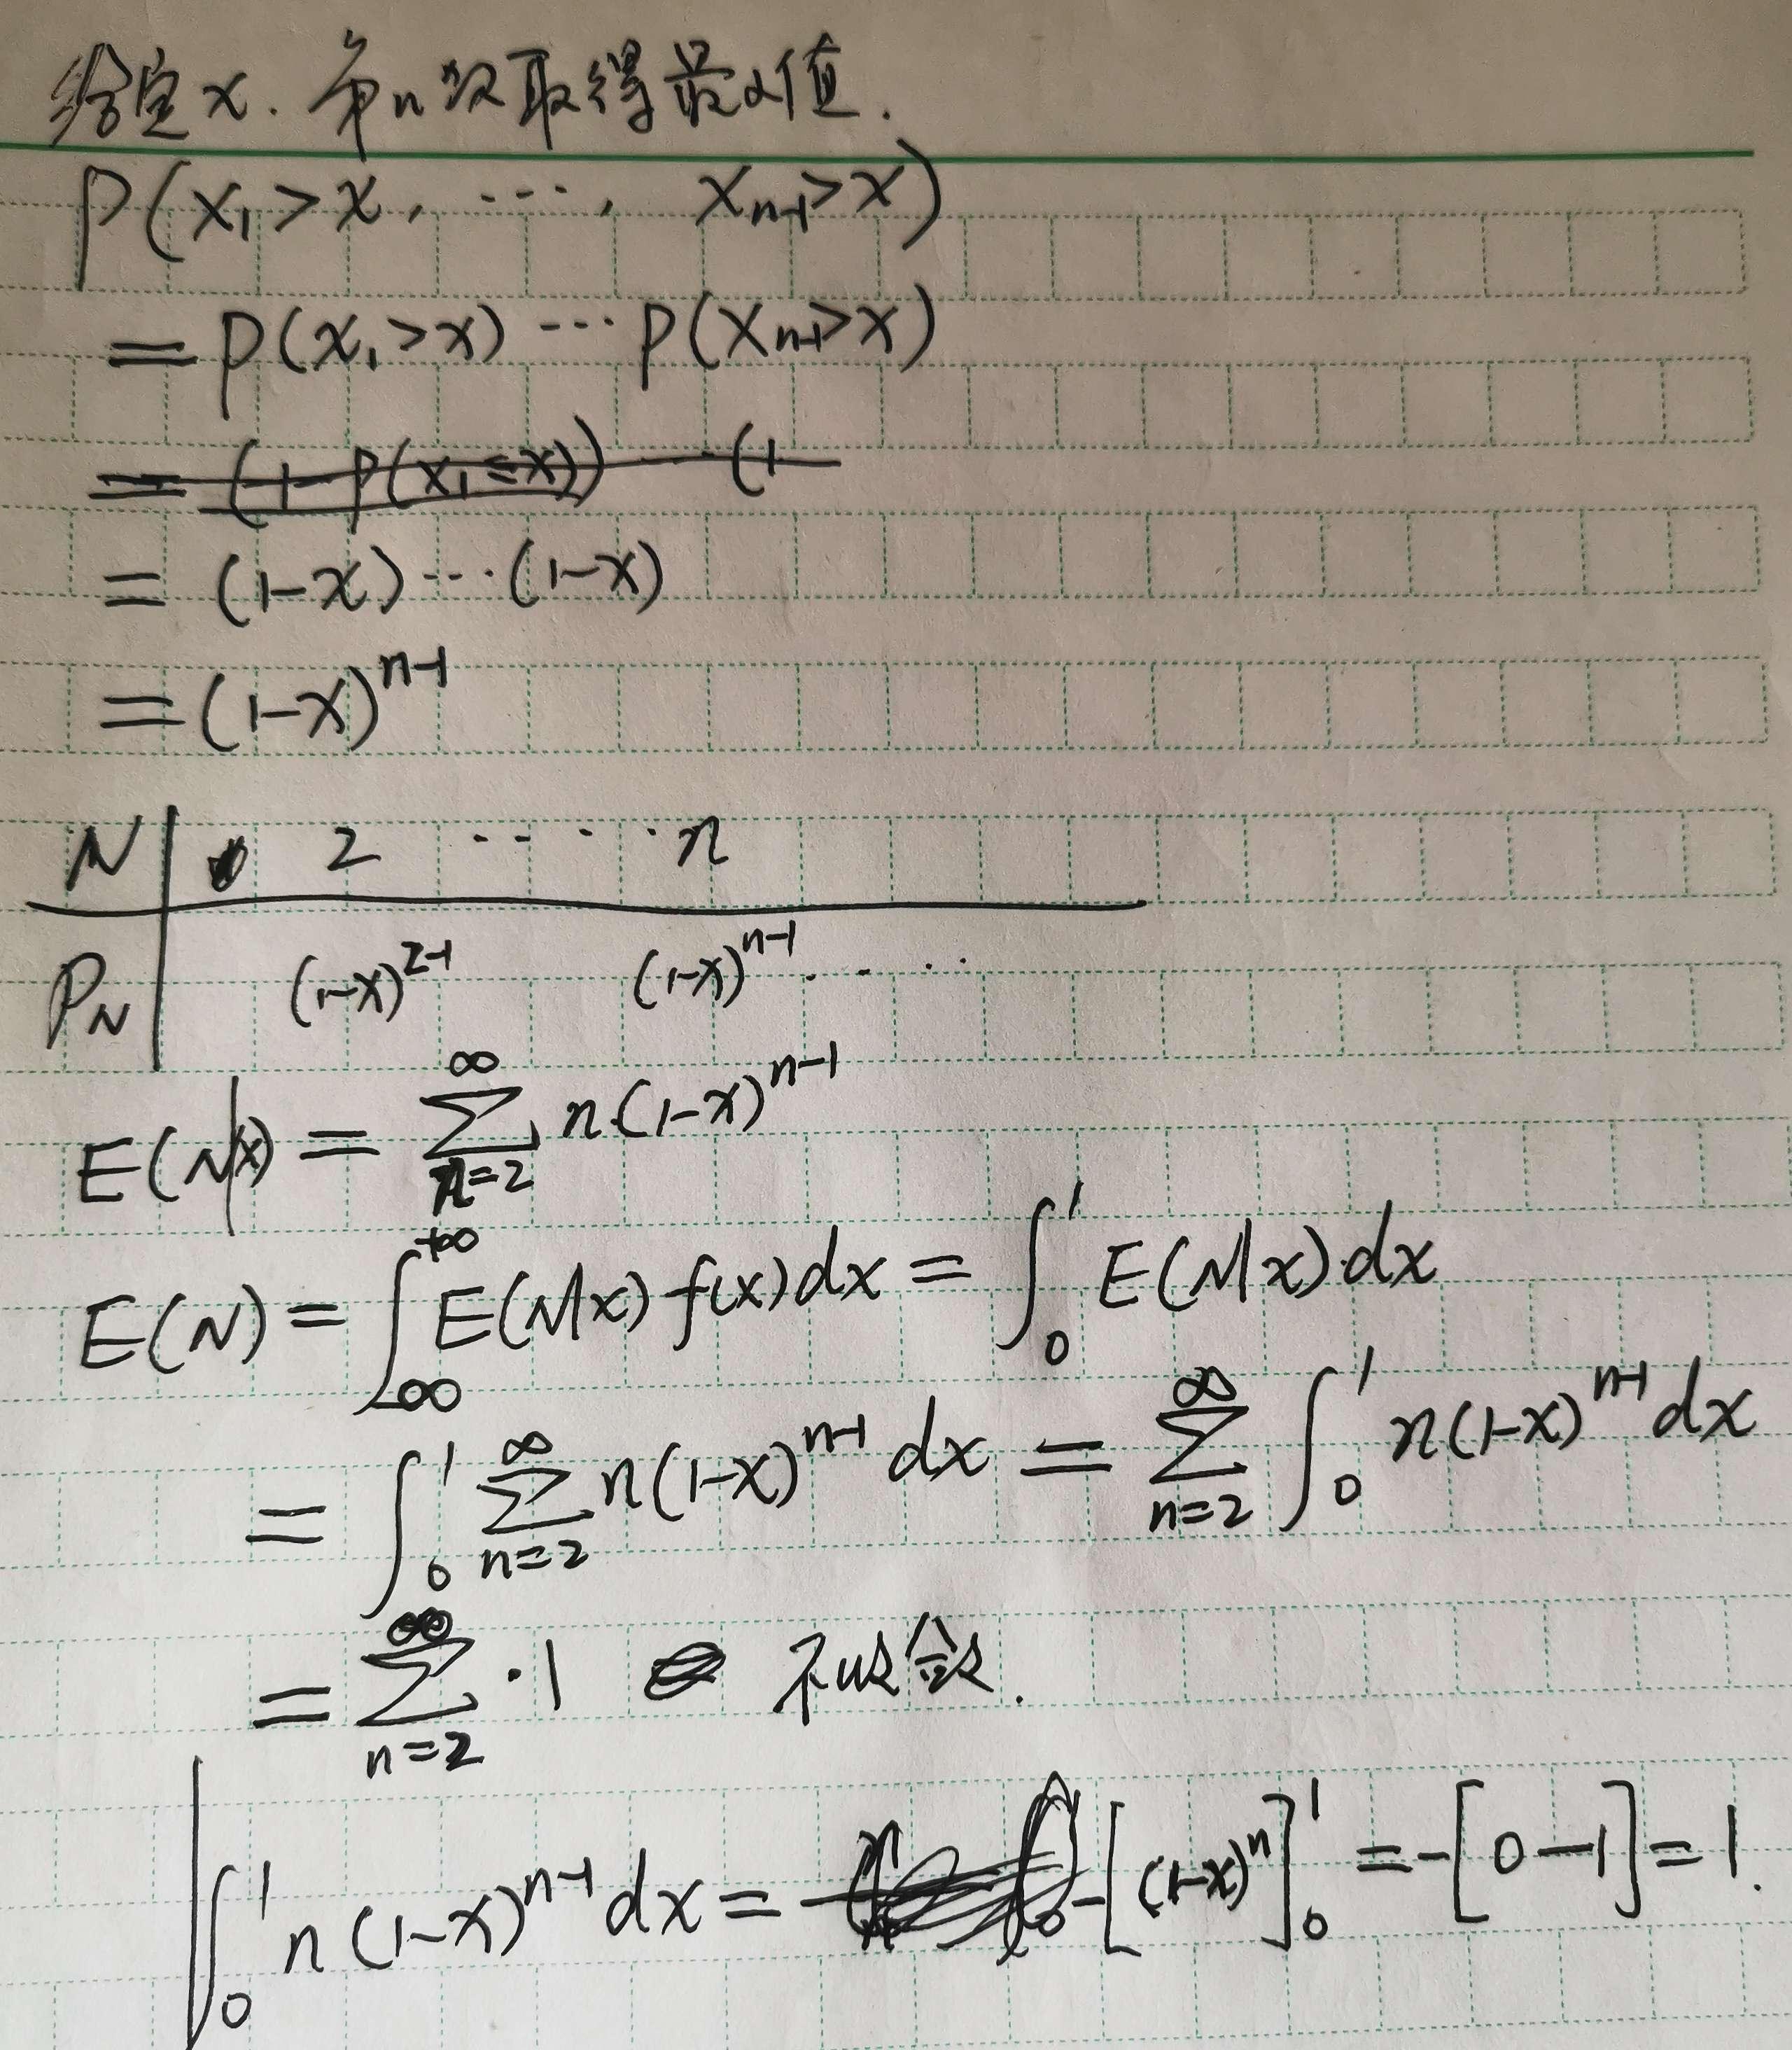 给定x. 第n次取得最小值.
P(x₁>x, ⋯, xₙ₋₁>x)
= P(x₁>x) ⋯ P(xₙ₋₁>x)
= (1-P(x₁≤x)) ⋯ (1
= (1-x)⋯(1-x)
= (1-x)ⁿ⁻¹
N | 2 ⋯⋯ n
P_N | (1-x)²⁻¹ (1-x)ⁿ⁻¹ ⋯⋯
E(N|x) = ∑_{n=2}^{∞} n·(1-x)ⁿ⁻¹
E(N) = ∫_{-∞}^{+∞} E(N|x) f(x)dx = ∫₀¹ E(N|x)dx
= ∫₀¹ ∑_{n=2}^{∞} n(1-x)ⁿ⁻¹ dx = ∑_{n=2}^{∞} ∫₀¹ n(1-x)ⁿ⁻¹ dx
= ∑_{n=2}^{∞} ·1 不收敛.
∫₀¹ n(1-x)ⁿ⁻¹ dx = -[(1-x)ⁿ]₀¹ = -[0-1] = 1.